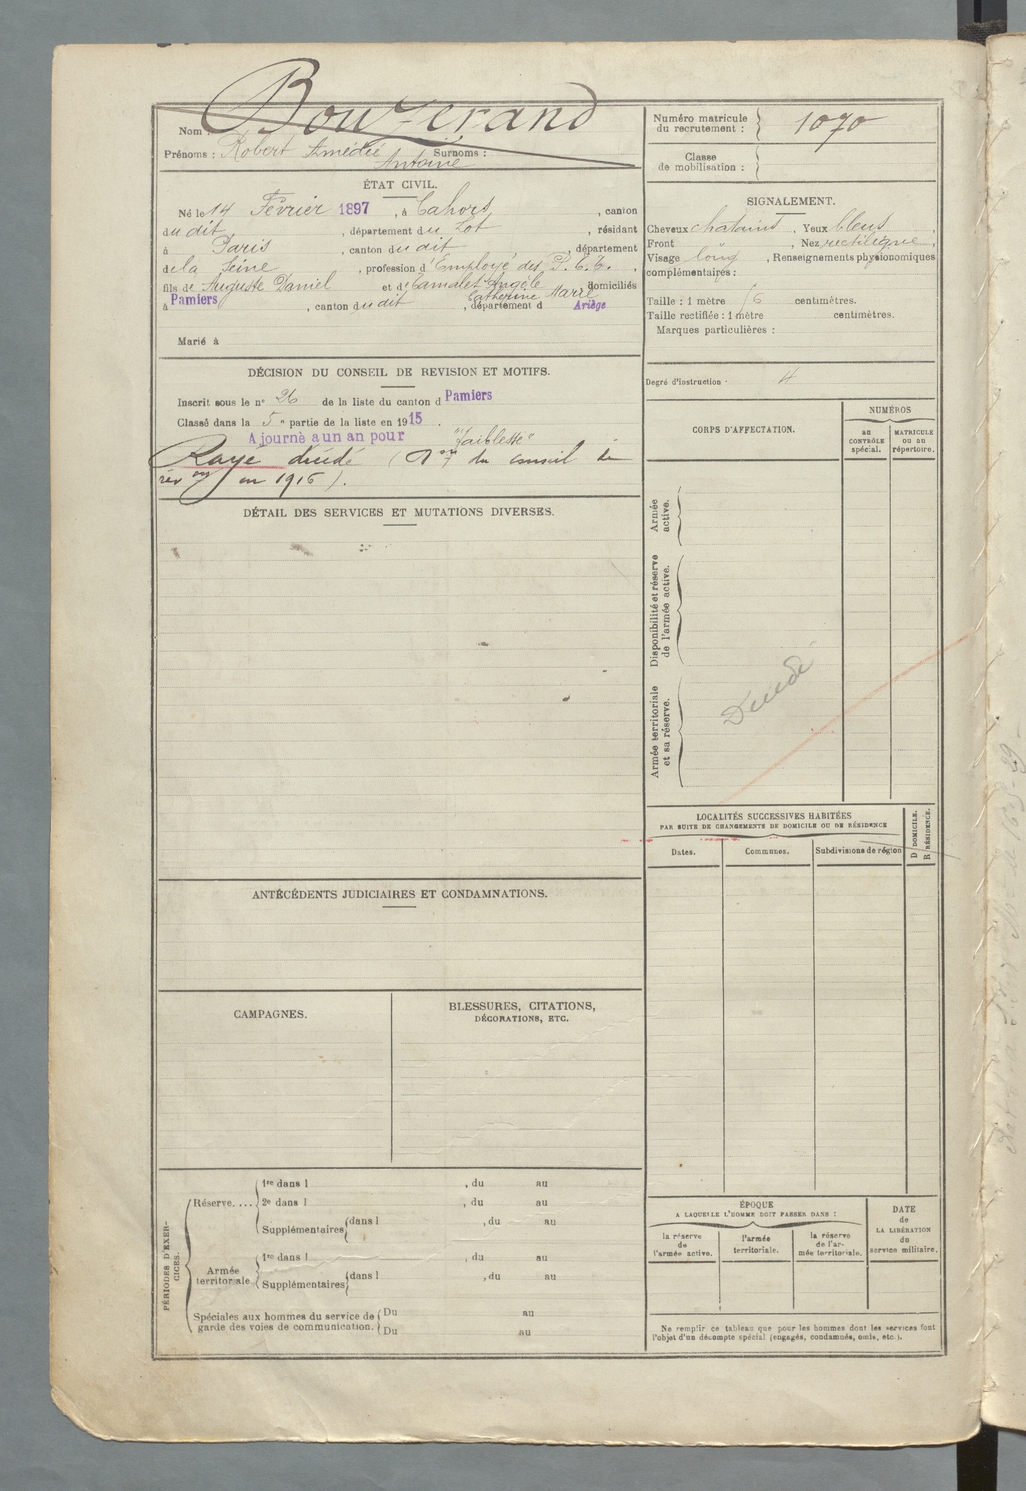 Nom : Bouzerand
Prénoms : Robert Amédée Surnoms :
Antoine
ÉTAT CIVIL.
Né le 14 Février 1897 , à Cahors , canton
du dit , département du Lot , résidant
à Paris , canton du dit , département
de la Seine , profession d'Employé des P.T.T. ,
fils de Auguste Daniel et de Camalet Angèle domiciliés
Catherine Marre
à Pamiers , canton du dit , département d Ariège
Marié à
DÉCISION DU CONSEIL DE REVISION ET MOTIFS.
Inscrit sous le n° 26 de la liste du canton d Pamiers
Classé dans la 5e partie de la liste en 1915 .
Ajourné a un an pour "faiblesse"
Raye décédé ( du conseil de
rév on en 1916 ).
DÉTAIL DES SERVICES ET MUTATIONS DIVERSES.
ANTÉCÉDENTS JUDICIAIRES ET CONDAMNATIONS.
CAMPAGNES.
BLESSURES, CITATIONS,
DÉCORATIONS, ETC.
PÉRIODES D'EXERCICES.
Réserve....
1re dans l , du au
2e dans l , du au
Supplémentaires dans l , du au
Armée
territoriale
1re dans l , du au
Supplémentaires dans l , du au
Spéciales aux hommes du service de
garde des voies de communication.
Du au
Du au
Numéro matricule
du recrutement : 1070
Classe
de mobilisation :
SIGNALEMENT.
Cheveux chatains . Yeux bleus ,
Front , Nez rectiligne ,
Visage long , Renseignements physionomiques
complémentaires :
Taille : 1 mètre 56 centimètres.
Taille rectifiée : 1 mètre centimètres.
Marques particulières :
Degré d'instruction · 4
CORPS D'AFFECTATION.
NUMÉROS
AU
CONTRÔLE
spécial.
MATRICULE
OU AU
répertoire.
Armée
active.
Disponibilité et réserve
de l'armée active.
Armée territoriale
et sa réserve.
Décédé
LOCALITÉS SUCCESSIVES HABITÉES
PAR SUITE DE CHANGEMENTS DE DOMICILE OU DE RÉSIDENCE
Dates.
Communes.
Subdivisions de région
D DOMICILE.
R RÉSIDENCE.
ÉPOQUE
A LAQUELLE L'HOMME DOIT PASSER DANS :
la réserve
de
l'armée active.
l'armée
territoriale.
la réserve
de l'ar-
mée territoriale.
DATE
de
LA LIBÉRATION
du
service militaire.
Ne remplir ce tableau que pour les hommes dont les services font
l'objet d'un décompte spécial (engagés, condamnés, omis, etc.).